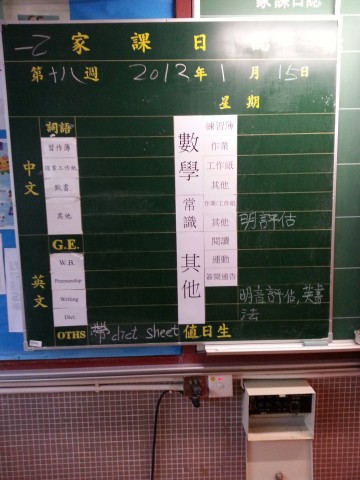 一乙 家課日誌
家課日誌
第十八週 2012年1月15日
星期
中文
詞語
習作簿
語文工作紙
默書
其他
數學
練習簿
作業
工作紙
其他
常識
作業/工作紙
其他 明評估
英文
G.E.
W.B.
Penmanship
Writing
Dict.
OTHS 帶dict sheet
其他
閱讀
運動
簽閱通告
明音評估,英書
法
值日生